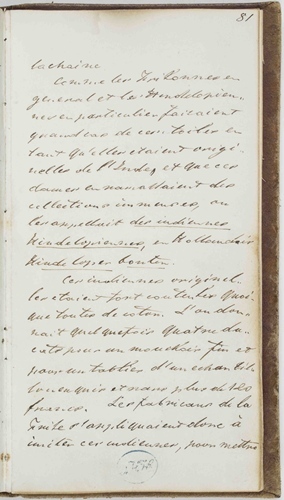 81
la chaine
Comme les Frisonnes en
general et les Hindelopien-
nes en particulier faisaient
grand cas de ces toiles en
tant qu'elles étaient origi-
nelles de l'Inde, et que ces
dames en ramassaient des
collections immenses, on
les appellait des indiennes
Hindelopiennes, en Hollandais
Hindelooper bonten.
Ces indiennes originel-
les étaient fort couteuses quoi-
que toutes de coton. L'on don-
nait quelquefois quatre du-
cats pour un mouchoir fin et
pour un tablier d'un échantil-
lon exquis et rare plus de
francs. Les fabricans de la
Frise s'appliquaient donc à
imiter ces indiennes, pour mettre